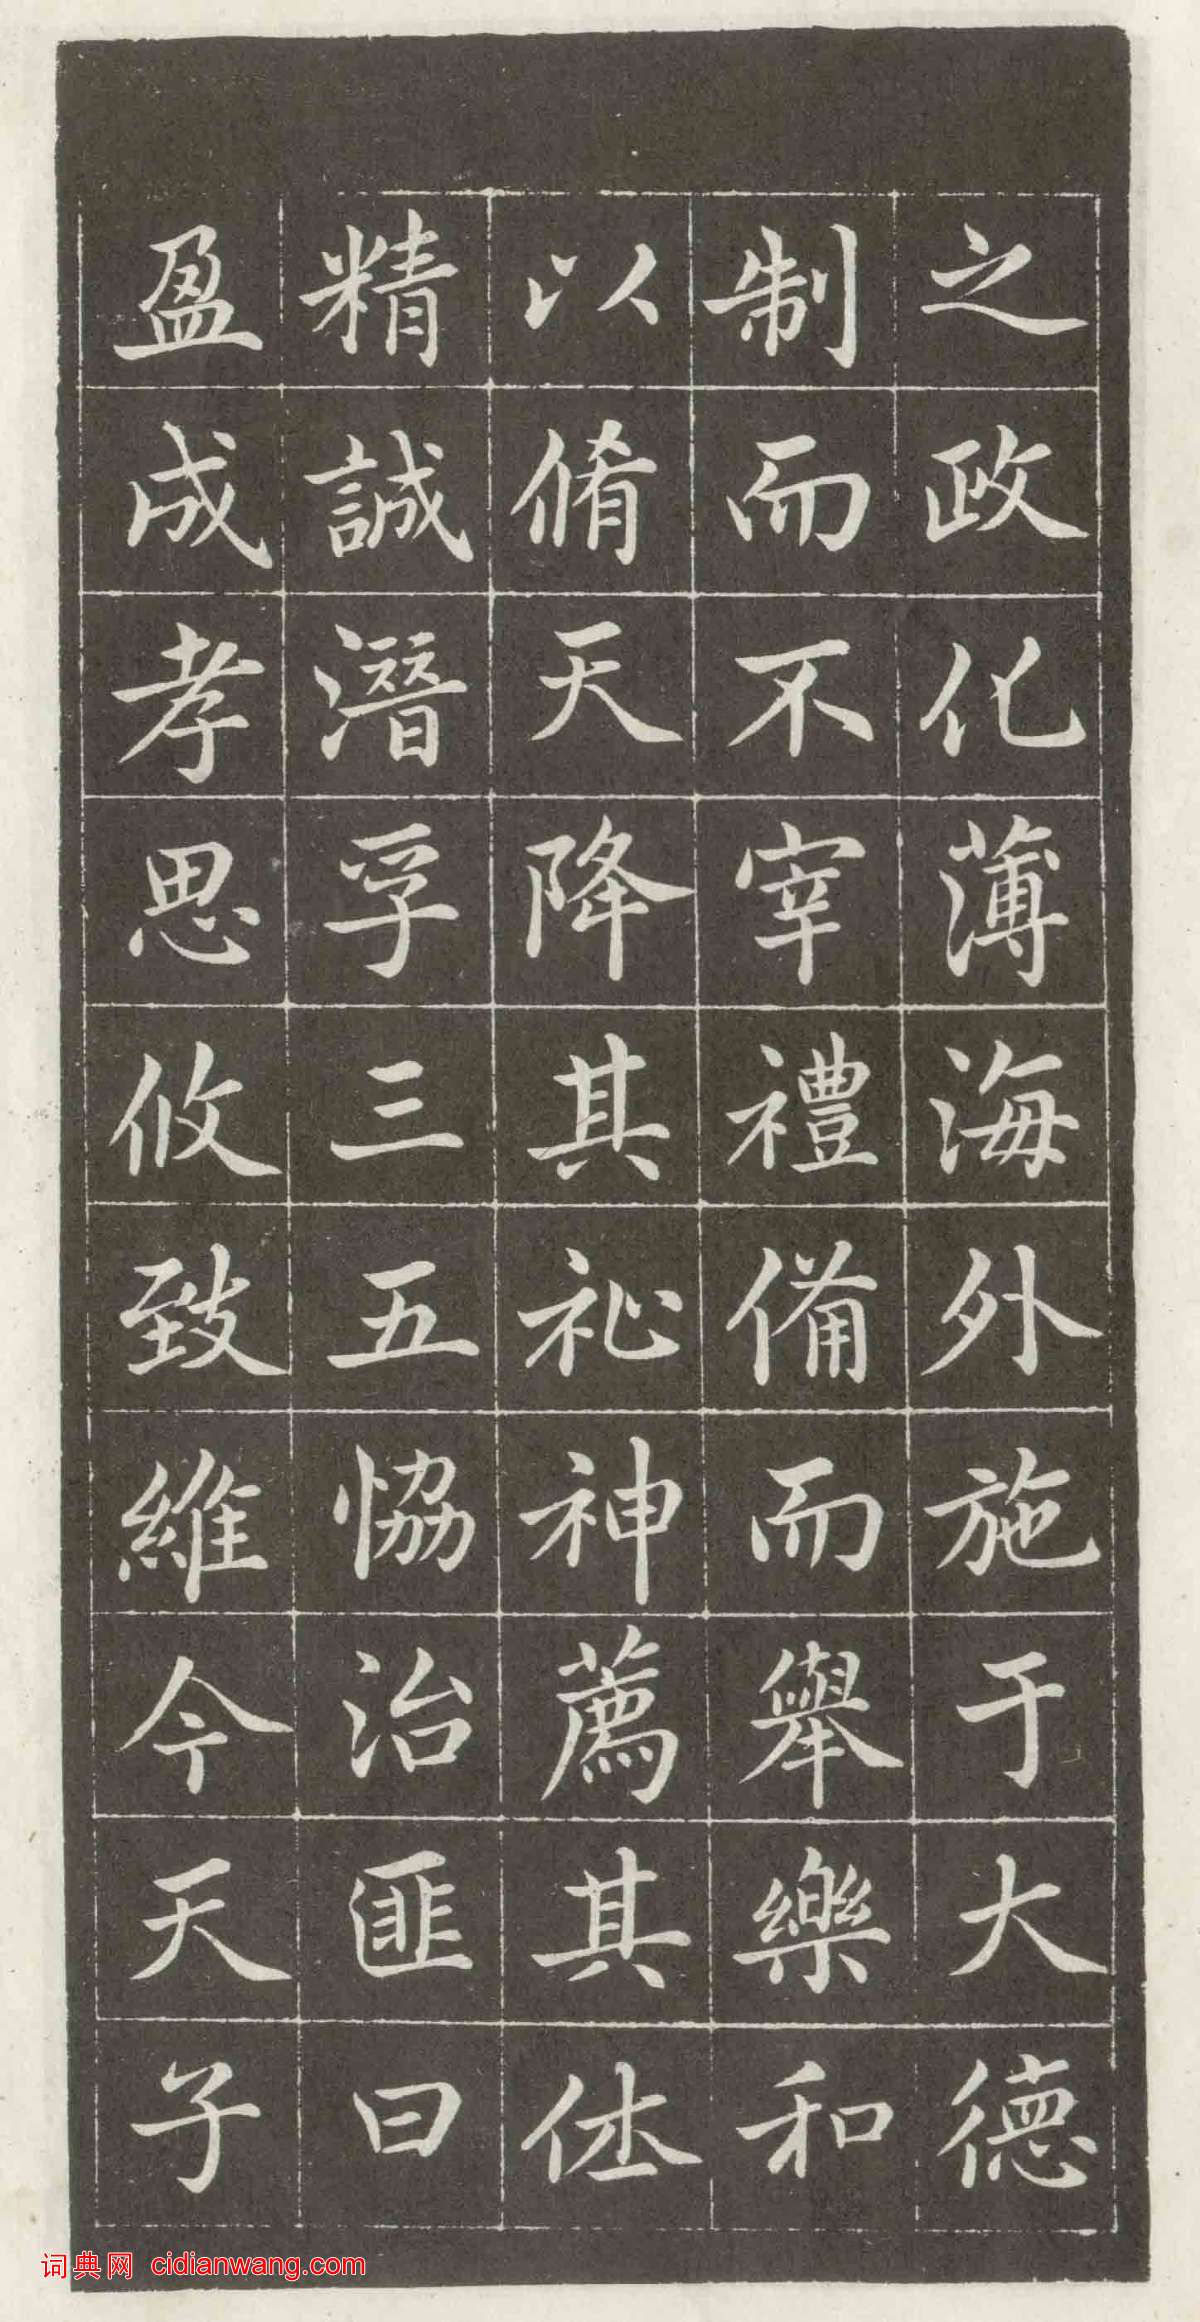 之政化薄海外施于大德
制而不宰禮備而舉樂和
以脩天降其祉神薦其休
精誠潛孚三五恊治匪曰
盈成孝思攸致維今天子
词典网 cidianwang.com